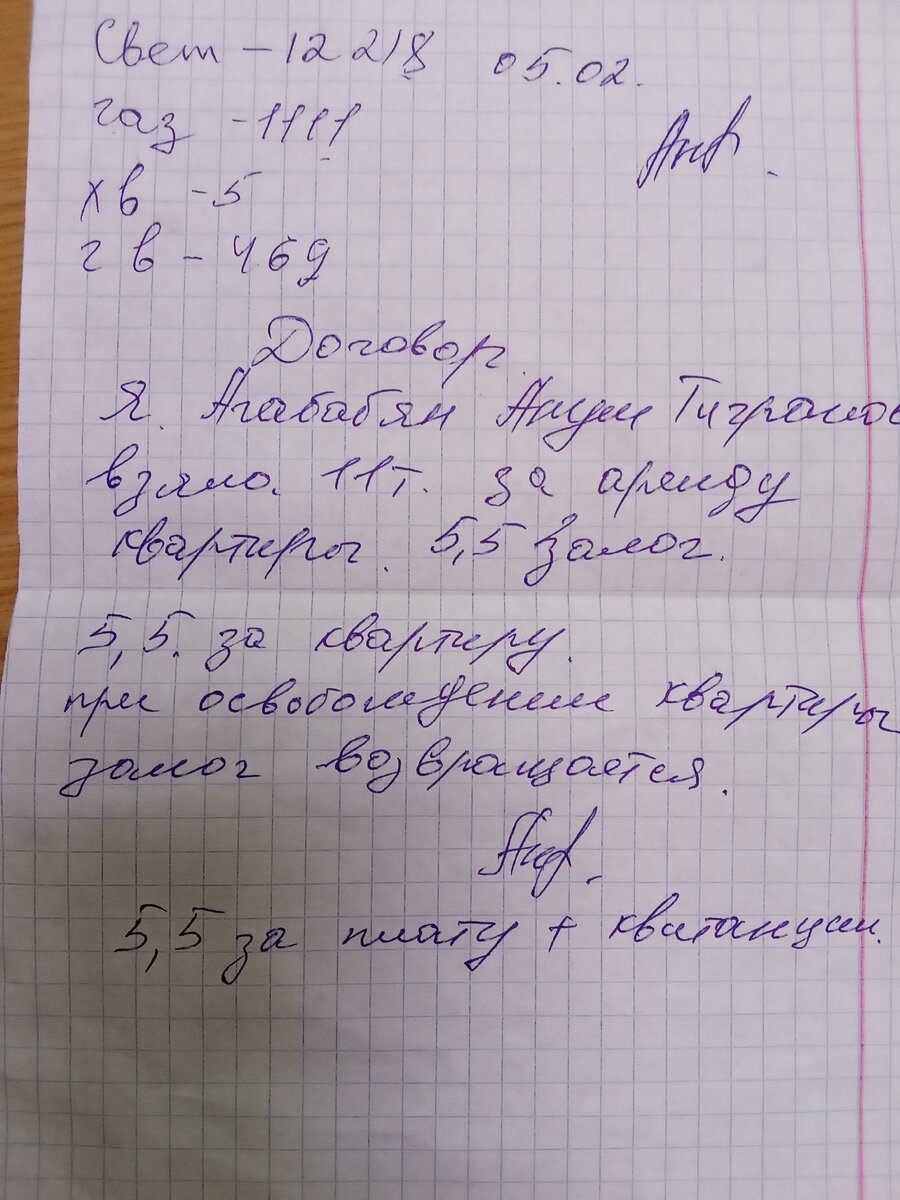 Свет - 12218 05.02.
газ - 1111
хв - 5
гв - 469
Договор
Я. Агабабян Ануш Тигранов
взяла. 11т. за аренду
квартиры. 5,5 залог.
5,5. за квартиру.
при освобождении квартиры
залог возвращается.
5,5 за плату + квитанции.